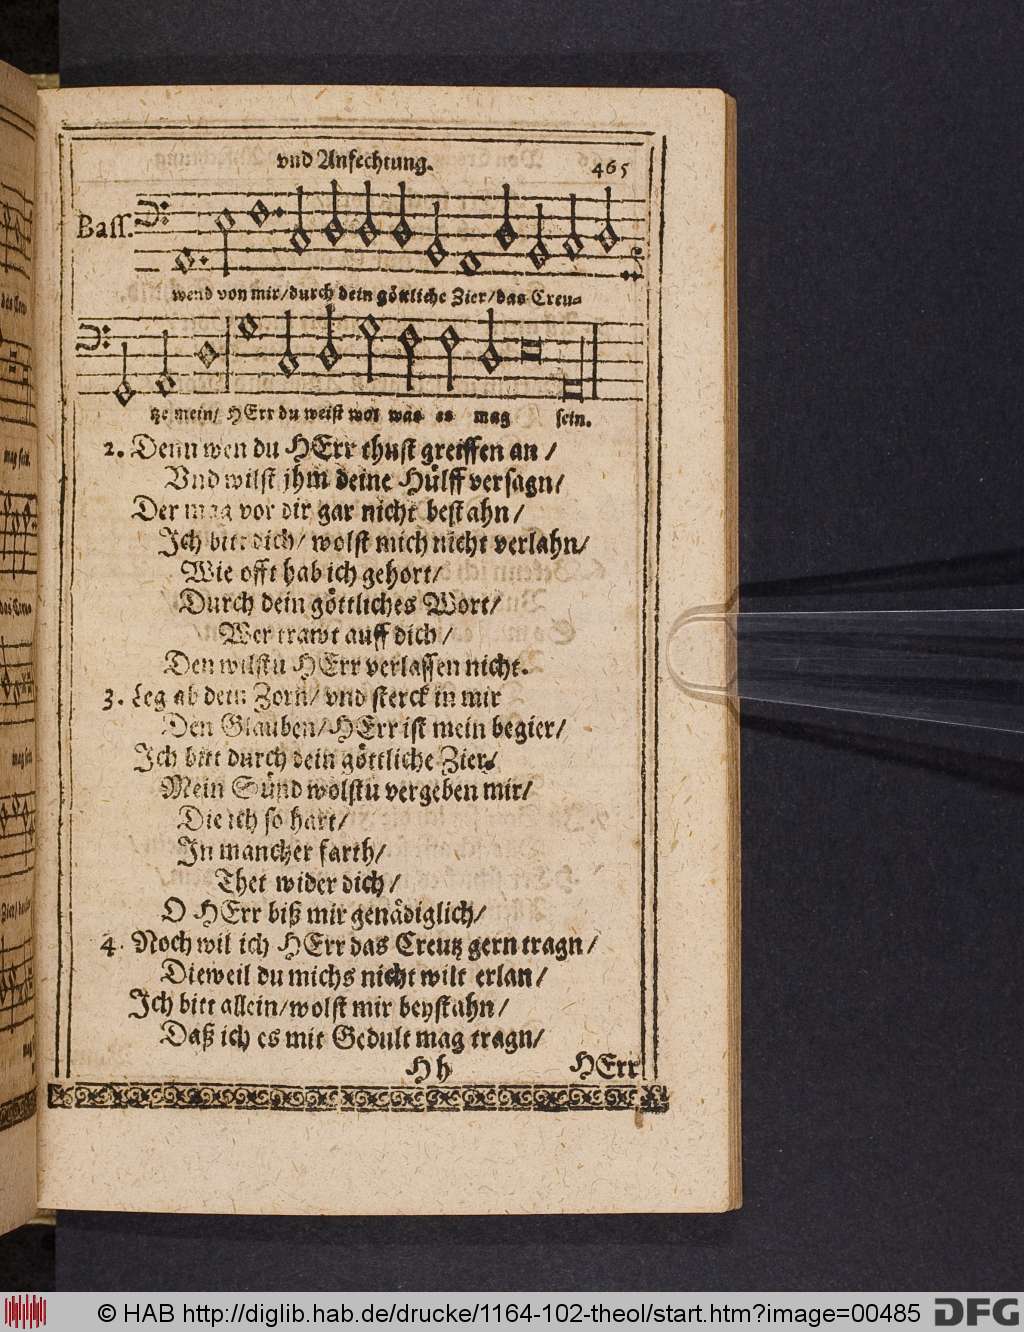 vnd Anfechtung. 465
Bass.
wend von mir/durch dein göttliche Zier/das Creu-
tze mein/ HErr du weist wol was es mag sein.
2. Denn wen du HErr thust greiffen an /
Vnd wilst jhm deine Hülff versagn/
Der mag vor dir gar nicht bestahn/
Ich bitt dich/ wolst mich nicht verlahn/
Wie offt hab ich gehort/
Durch dein göttliches Wort/
Wer trawt auff dich/
Den wilstu HErr verlassen nicht.
3. Leg ab dein Zorn/ vnd sterck in mir
Den Glauben/HErr ist mein begier/
Ich bitt durch dein göttliche Zier/
Mein Sünd wolstu vergeben mir/
Die ich so hart/
In mancher farth/
Thet wider dich/
O HErr biß mir genädiglich/
4. Noch wil ich HErr das Creutz gern tragn/
Dieweil du michs nicht wilt erlan/
Ich bitt allein/wolst mir beystahn/
Daß ich es mit Gedult mag tragn/
Hh HErr
© HAB http://diglib.hab.de/drucke/1164-102-theol/start.htm?image=00485 DFG